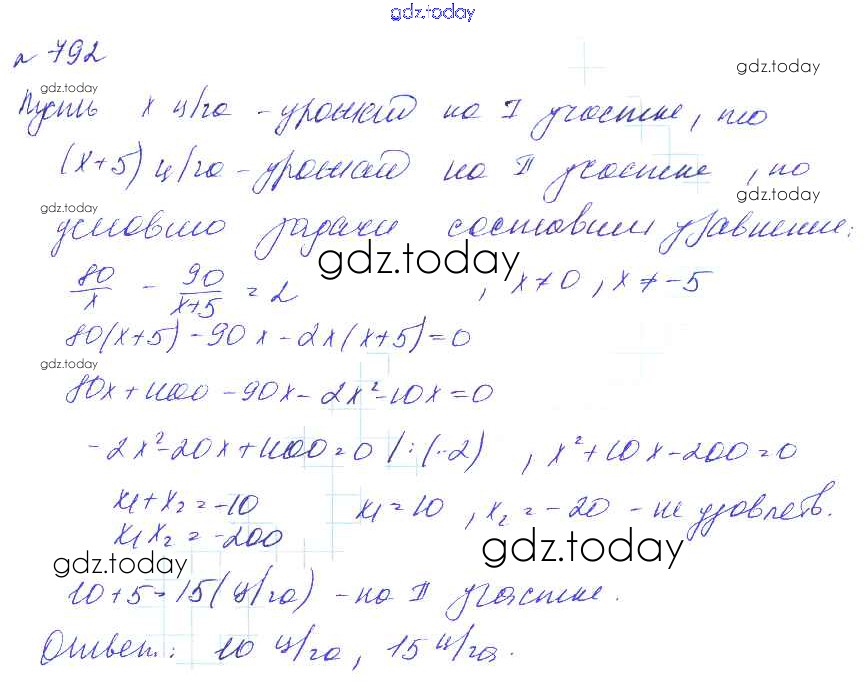 gdz.today
№ 792
gdz.today
gdz.today
Пусть x ц/га - урожай на I участке, то
(x+5) ц/га - урожай на II участке, по
gdz.today
gdz.today
условию задачи составим уравнение:
gdz.today
80/x - 90/(x+5) = 2 , x≠0, x≠-5
80(x+5)-90x-2x(x+5)=0
gdz.today
80x+400-90x-2x²-10x=0
-2x²-20x+400=0 |:(-2) , x²+10x-200=0
x₁+x₂=-10 x₁=10, x₂=-20 - не удовлетв.
x₁x₂=-200
gdz.today
gdz.today
10+5=15(ц/га) - на II участке.
Ответ: 10 ц/га, 15 ц/га.